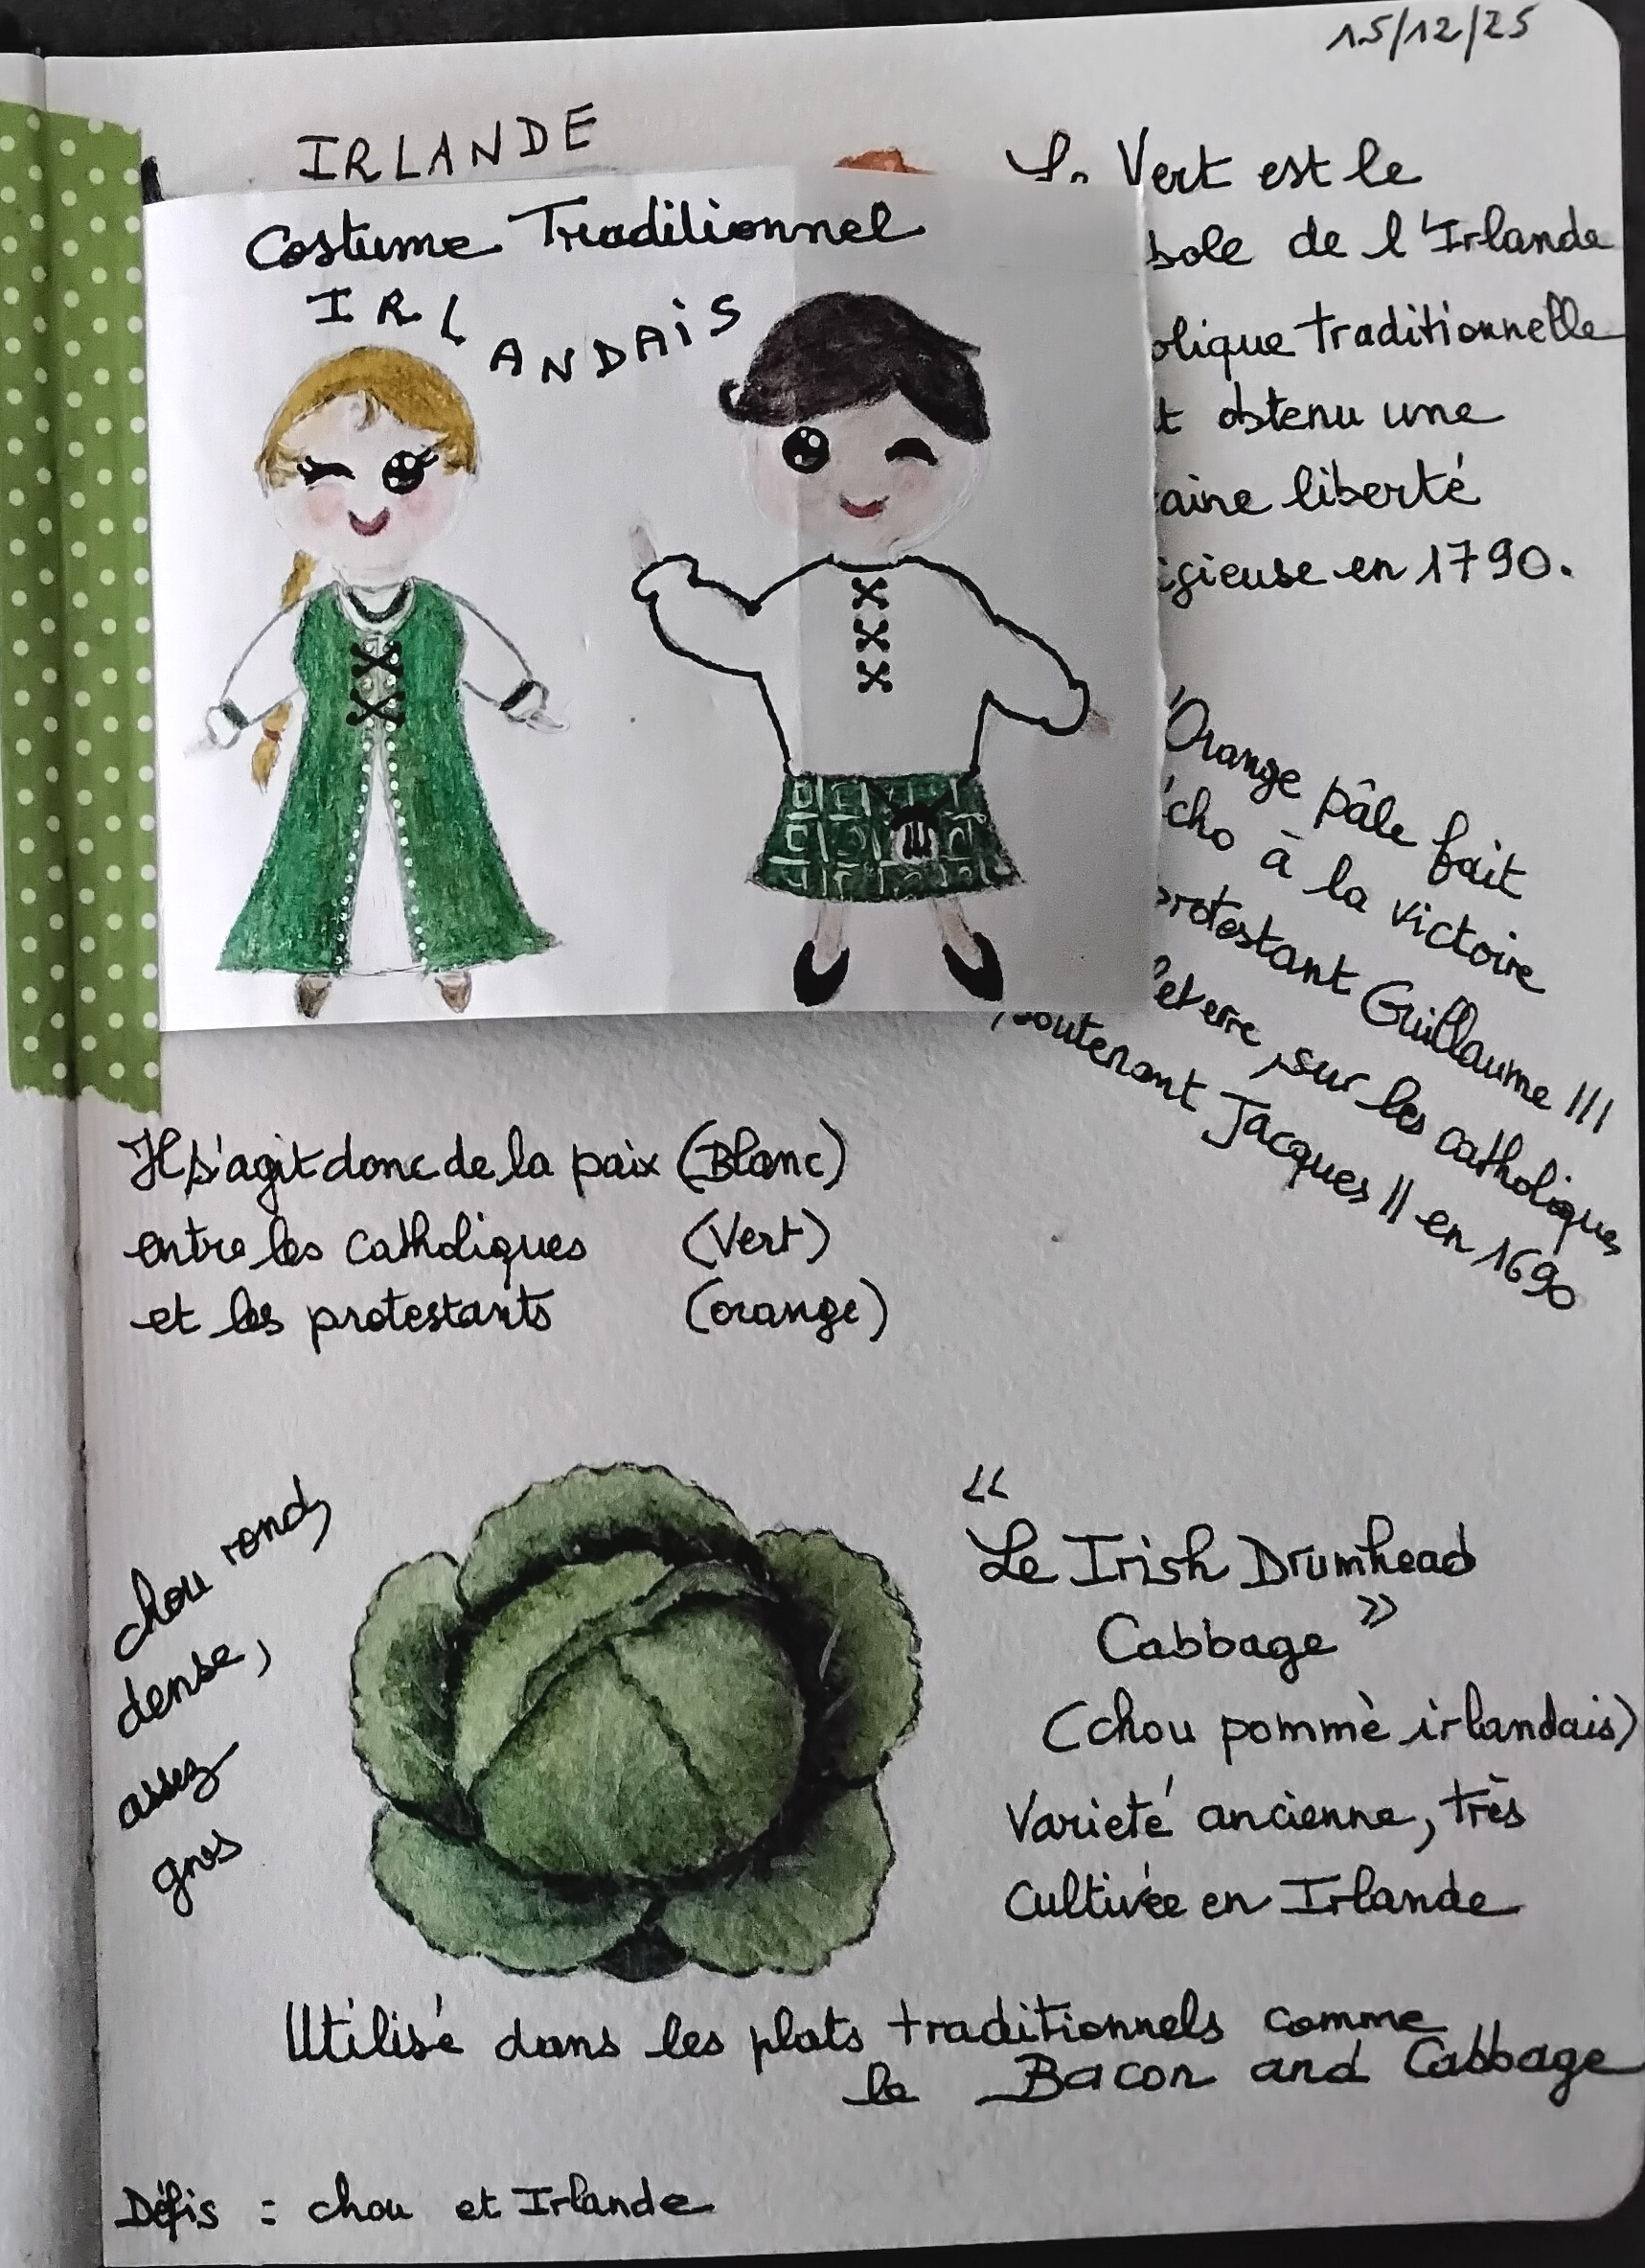 15/12/25
IRLANDE
Costume Traditionnel
IRLANDAIS
Vert est le
bole de l'Irlande
olique traditionnelle
t obtenu une
aine liberté
igieuse en 1790.
'Orange pâle fait
'cho à la victoire
protestant Guillaume III
leterre, sur les catholiques
soutenant Jacques II en 1690
Il s'agit donc de la paix (Blanc)
entre les catholiques (Vert)
et les protestants (orange)
chou rond,
dense,
assez
gros
"
Le Irish Drumhead
Cabbage "
(chou pommè irlandais)
Varieté ancienne, très
cultivée en Irlande
Utilisé dans les plats traditionnels comme
le Bacon and Cabbage
Défis = chou et Irlande